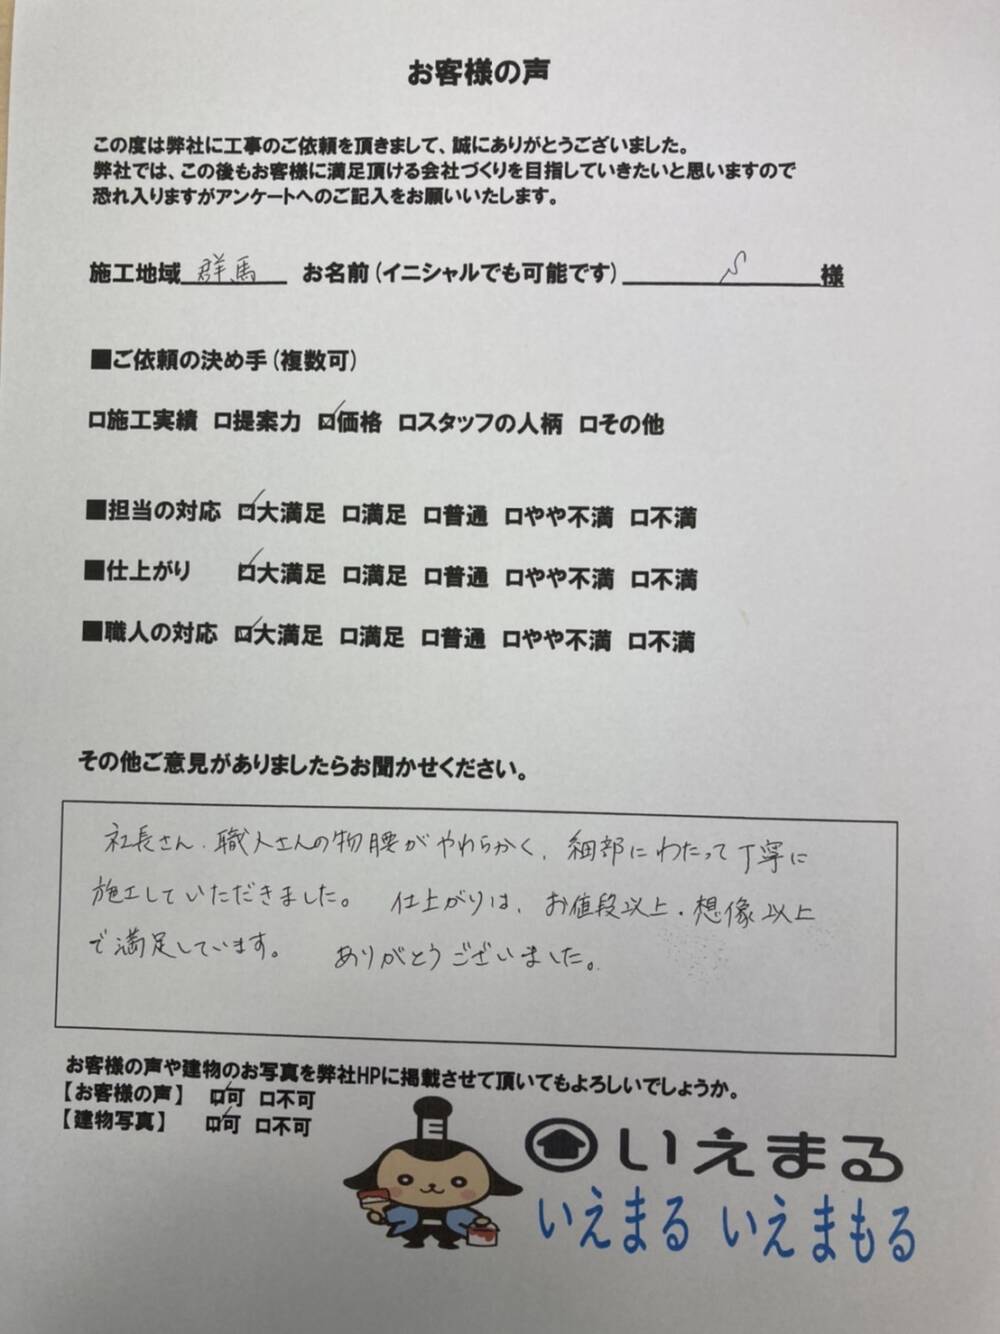 お客様の声
この度は弊社に工事のご依頼を頂きまして、誠にありがとうございました。
弊社では、この後もお客様に満足頂ける会社づくりを目指していきたいと思いますので
恐れ入りますがアンケートへのご記入をお願いいたします。
施工地域 群馬 お名前(イニシャルでも可能です) S 様
■ご依頼の決め手(複数可)
□施工実績 □提案力 ☑価格 □スタッフの人柄 □その他
■担当の対応 ☑大満足 □満足 □普通 □やや不満 □不満
■仕上がり ☑大満足 □満足 □普通 □やや不満 □不満
■職人の対応 ☑大満足 □満足 □普通 □やや不満 □不満
その他ご意見がありましたらお聞かせください。
社長さん、職人さんの物腰がやわらかく、細部にわたって丁寧に
施工していただきました。 仕上がりは、お値段以上・想像以上
で満足しています。 ありがとうございました。
お客様の声や建物のお写真を弊社HPに掲載させて頂いてもよろしいでしょうか。
【お客様の声】 ☑可 □不可
【建物写真】 ☑可 □不可
いえまる
いえまる いえまもる